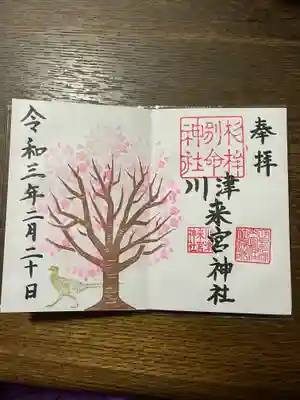 奉拝
杉桙
別命
神社
川津来宮神社
令和三年二月二十日